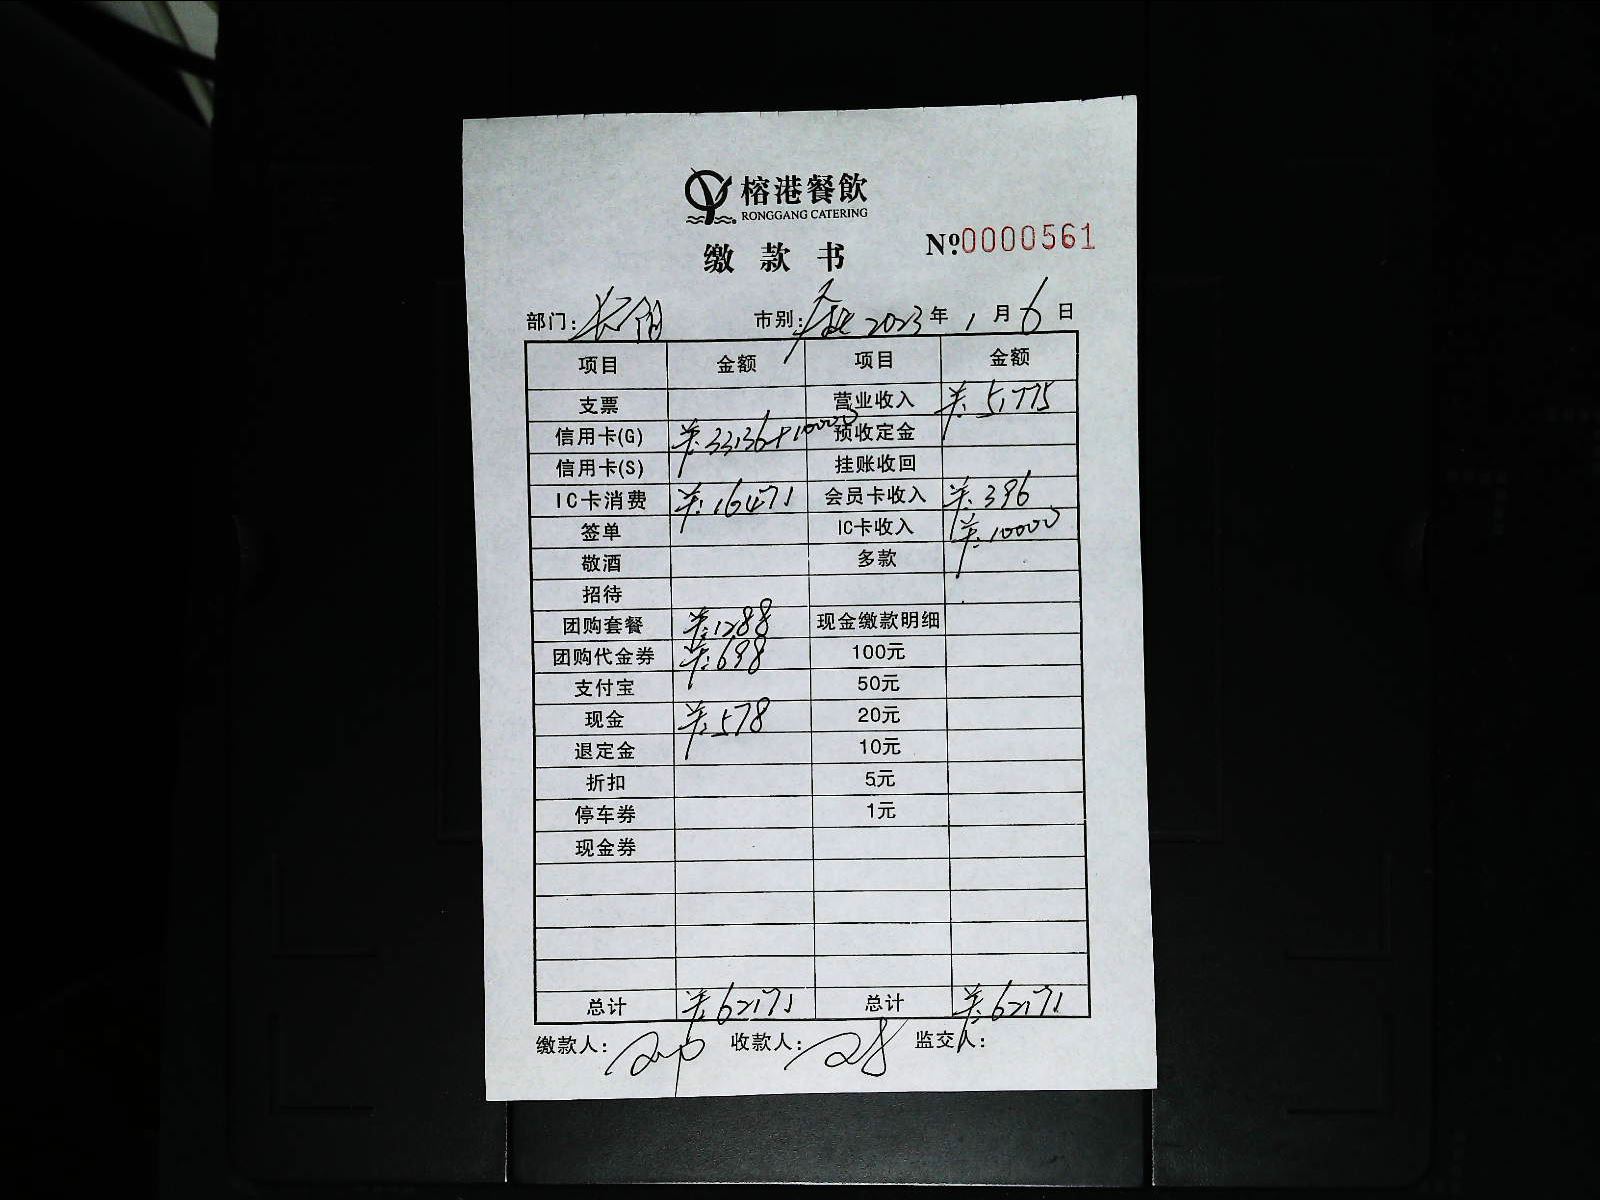 榕港餐飲
RONGGANG CATERING
缴款书
№0000561
部门: 市别: 2023年1月6日
项目 金额 项目 金额
支票 营业收入 ¥:51775
信用卡(G) ¥:33136+10000 预收定金
信用卡(S) 挂账收回
IC卡消费 ¥:16471 会员卡收入 ¥:396
签单 IC卡收入 ¥:10000
敬酒 多款
招待
团购套餐 ¥:1288 现金缴款明细
团购代金券 ¥:698 100元
支付宝 50元
现金 ¥:578 20元
退定金 10元
折扣 5元
停车券 1元
现金券
总计 ¥:62171 总计 ¥:62171
缴款人: 收款人: 监交人: